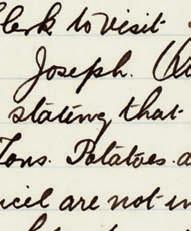 Clerk to visit
Joseph.
stating that
Tons. Potatoes.
are not in